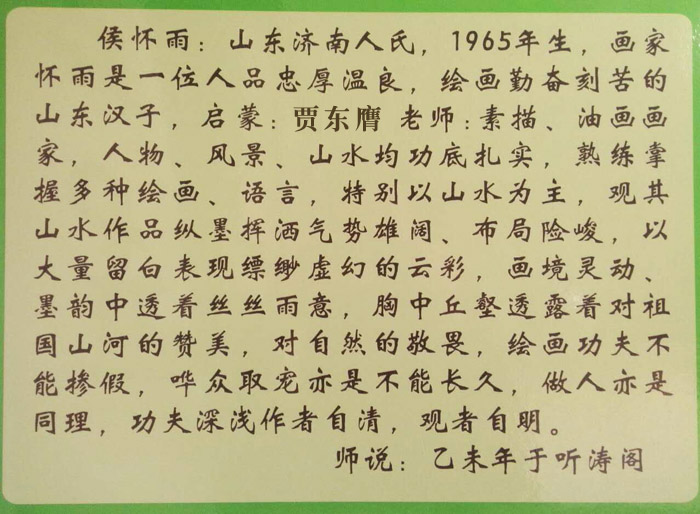 侯怀雨：山东济南人氏，1965年生，画家
怀雨是一位人品忠厚温良，绘画勤奋刻苦的
山东汉子，启蒙：贾东膺 老师：素描、油画画
家，人物、风景、山水均功底扎实，熟练掌
握多种绘画、语言，特别以山水为主，观其
山水作品纵墨挥洒气势雄阔、布局险峻，以
大量留白表现缥缈虚幻的云彩，画境灵动、
墨韵中透着丝丝雨意，胸中丘壑透露着对祖
国山河的赞美，对自然的敬畏，绘画功夫不
能掺假，哗众取宠亦是不能长久，做人亦是
同理，功夫深浅作者自清，观者自明。
师说：乙未年于听涛阁